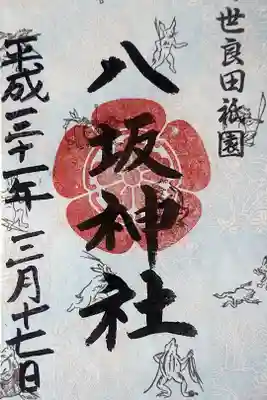 世良田祇園
八坂神社
平成三十一年 三月十七日